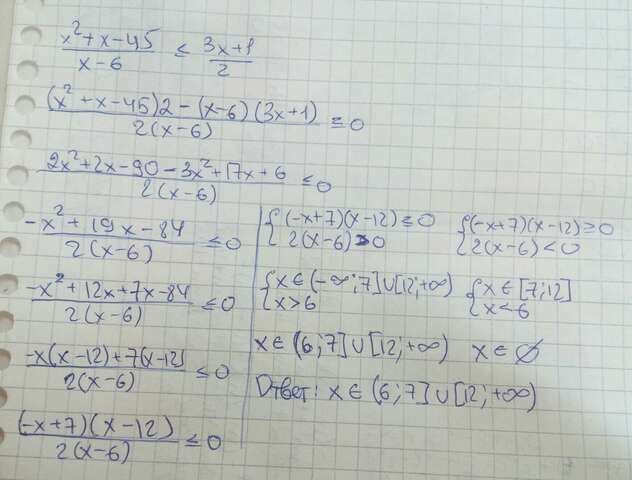 (x²+x-45)/(x-6) ≤ (3x+1)/2
((x²+x-45)2-(x-6)(3x+1))/(2(x-6)) ≤ 0
(2x²+2x-90-3x²+17x+6)/(2(x-6)) ≤ 0
(-x²+19x-84)/(2(x-6)) ≤ 0
(-x²+12x+7x-84)/(2(x-6)) ≤ 0
(-x(x-12)+7(x-12))/(2(x-6)) ≤ 0
((-x+7)(x-12))/(2(x-6)) ≤ 0
{(-x+7)(x-12) ≤ 0
2(x-6) > 0
{x ∈ (-∞; 7] ∪ [12; +∞)
x > 6
x ∈ (6; 7] ∪ [12; +∞)
{(-x+7)(x-12) ≥ 0
2(x-6) < 0
{x ∈ [7; 12]
x < 6
x ∈ ∅
Ответ: x ∈ (6; 7] ∪ [12; +∞)